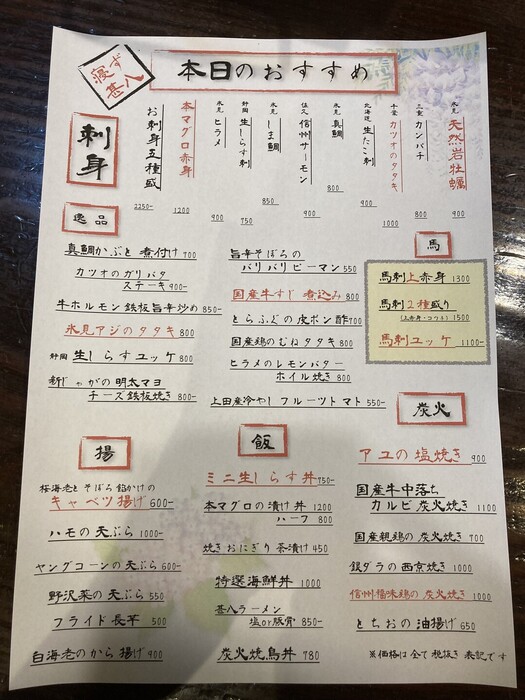 寝ず
甚八
本日のおすすめ
刺身
氷見 天然岩牡蠣 900
三重 カンパチ 800
千葉 カツオのタタキ 1000
北海道 生たこ刺 900
氷見 真鯛 800
佐久 信州サーモン 900
氷見 しま鯛
静岡 生しらす刺 750
氷見 ヒラメ 900
本マグロ赤身 1200
お刺身五種盛 2250-
逸品
真鯛かぶと 煮付け 700
カツオのガリバタ
ステーキ 900-
牛ホルモン鉄板旨辛炒め 850-
氷見アジのタタキ 800
静岡 生しらすユッケ 800
新じゃがの明太マヨ
チーズ鉄板焼き 800
旨辛そぼろの
バリバリピーマン 550
国産牛すじ 煮込み 800
とらふぐの皮ポン酢 700
国産鶏のむねタタキ 800
ヒラメのレモンバター
ホイル焼き 800
上田産冷やし フルーツトマト 550-
馬
馬刺上赤身 1300
馬刺2種盛り
(上赤身・コウネ) 1500
馬刺ユッケ 1100-
揚
桜海老とそぼろ餡かけの
キャベツ揚げ 600-
ハモの天ぷら 1000-
ヤングコーンの天ぷら 600-
野沢菜の天ぷら 550
フライド長芋 500
白海老のから揚げ 900
飯
ミニ生しらす丼 750-
本マグロの漬け丼 1200
ハーフ 800
焼きおにぎり茶漬け 450
特選海鮮丼 1000
甚八ラーメン
塩or豚骨 850-
炭火焼鳥丼 780
炭火
アユの塩焼き 900
国産牛中落ち
カルビ炭火焼き 1100
国産親鶏の炭火焼き 700
銀ダラの西京焼き 1000
信州福味鶏の炭火焼き 1000
とちおの油揚げ 650
※価格は全て税抜き表記です